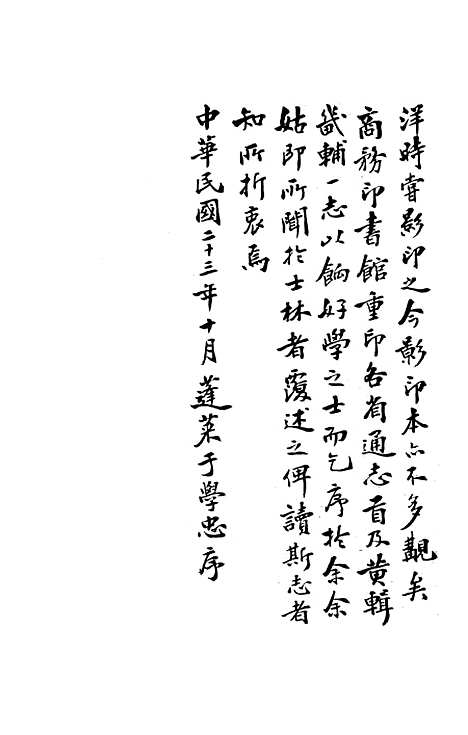 洋時嘗影印之今影印本亦不多觀矣
商務印書館重印各省通志首及黄輯
畿輔一志以餉好學之士而乞序於余余
姑即所聞於士林者覆述之俾讀斯志者
知所折衷焉
中華民國二十三年十月蓬萊于學忠序